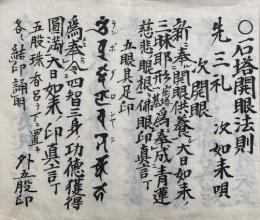 ○石塔開眼法則
先三礼 次如来唄
次開眼
新ニ奉開眼供養大日如来ノ
三昧耶形為奉成青蓮
慈悲眼根仏眼印真言丁
五眼具足印
為奉令四智三身功徳獲得
圓満大日如来ノ印真言丁
五股珠香呂ノ下ニ置キ
各結印誦明 外五股印